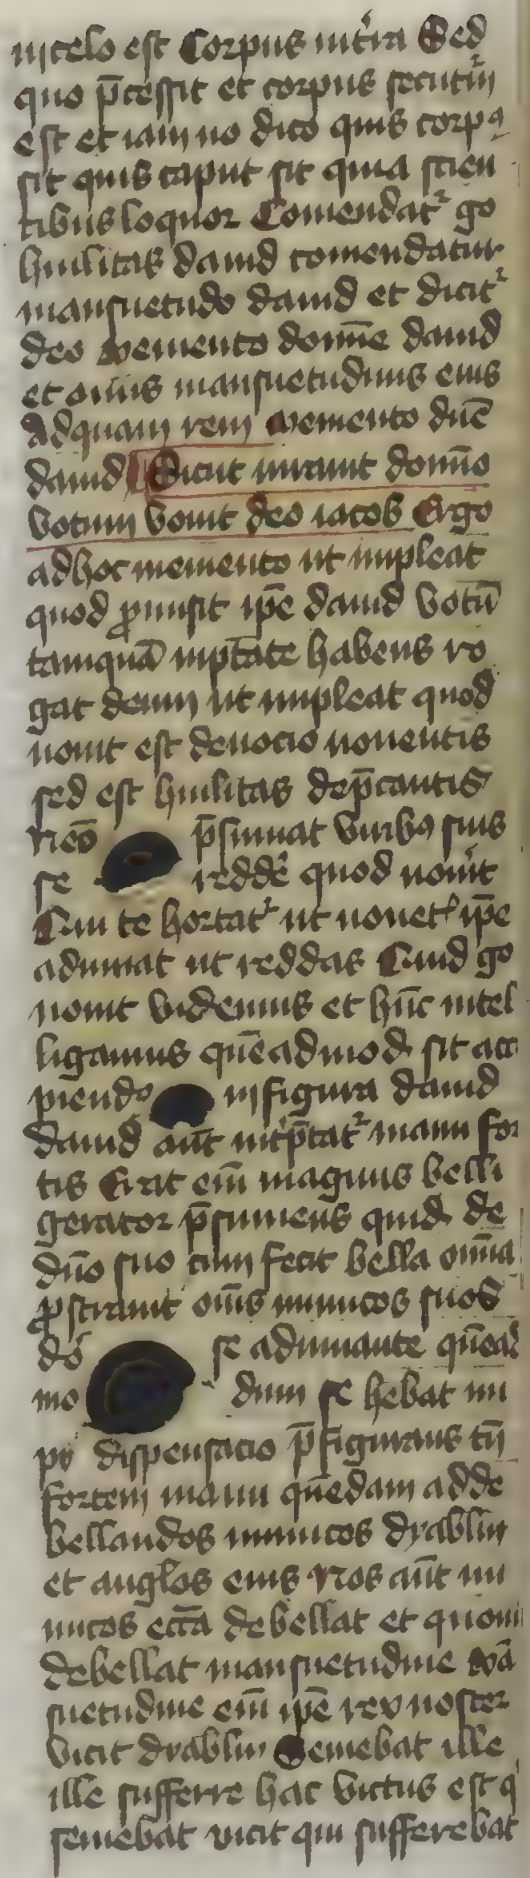 in celo est Corpus in terra Sed
quo p̄cessit et corpus secutū
est et iam nō dico quis corpꝰ
sit quis caput sit quia scien
tibus loquor Comendatᷣ go
huilitas dauid comendatur
mansuetudo dauid et dicitᷣ
deo memento domīe dauid
et om̄is mansuetudinis eius
Adquam rem memento dn̄e
dauid Sicut iurauit domīo
votum vouit deo iacob Ergo
adhoc memento ut impleat
quod ꝓmisit ip̄e dauid votū
tamquā inptāte habens ro
gat deum ut impleat quod
uouit est deuocio uouentis
sed est huilitas dep̄cantis
neō p̄sumat viribꝰ suis
se reddē quod uouit
Qui te hortatᷣ ut uouetᷣ ip̄e
adiuuat ut reddas Quid go
uouit videmus et hīc intel
ligamus quēadmod sit acci
piendꝰ in figura dauid
dauid aūt int̄p̄tatᷣ manu for
tis Erat eīm magnus belli
gerator p̄sumens quidē de
dn̄o suo cum fecit bella om̄ia
ꝓstrauit om̄is inimicos suos
dō se adiuuante quēad
mo dum se hēbat im
pij dispensacio p̄figurans tn̄
fortem manu quēdam adde
bellandos inimicos dyablm
et anglos eius Nos aūt ini
micos ecc̄a debellat et quom
debellat mansuetudine mā
suetudine eīm ip̄e rex noster
vicit dyablm Seuiebat ille
ille sufferre hac victus est q
seuiebat vicit qui sufferebat